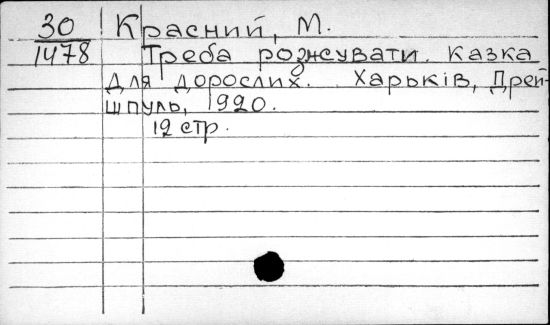 30
1478
Красний, М.
Треба розжувати. Казка
для дорослих. Харьків, Дрей-
шпуль, 1920.
12 стр.